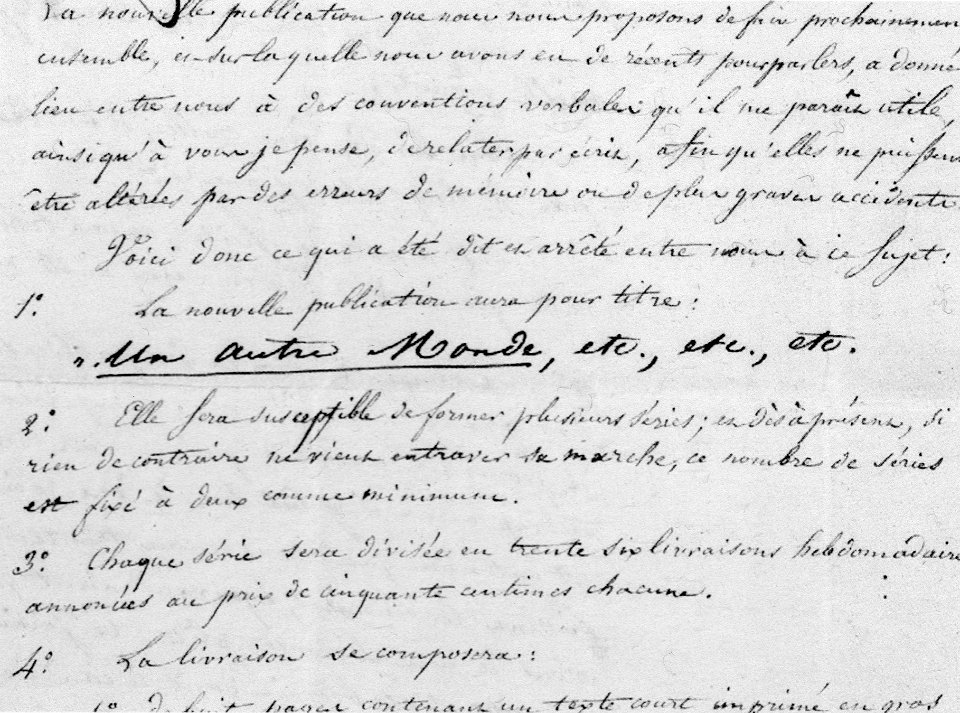 La nouvelle publication que nous nous proposons de faire prochainemen
ensemble, et sur laquelle nous avons eu de récents pourparlers, a donné
lieu entre nous à des conventions verbales qu'il me paraît utile,
ainsi qu'à vous je pense, de relater par écrit, afin qu'elles ne puissent
être altérées par des erreurs de mémoire ou de plus graves accidents.
Voici donc ce qui a été dit et arrêté entre nous à ce sujet:
1° La nouvelle publication aura pour titre:
". Un Autre Monde, etc., etc., etc.
2° Elle sera susceptible de former plusieurs séries; et dès à présent, si
rien de contraire ne vient entraver sa marche, ce nombre de séries
est fixé à deux comme minimum.
3° Chaque série sera divisée en trente six livraisons hebdomadaire
annoncées au prix de cinquante centimes chacune.
4° La livraison se composera:
1° de huit pages contenant un texte court imprimé en gros